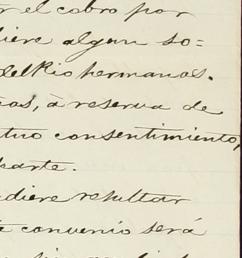 r el cobro por
diere algun so=
del Rio hermanos.
cas, à reserva de
tuo consentimiento,
parte.
udiere resultar
te convenio será